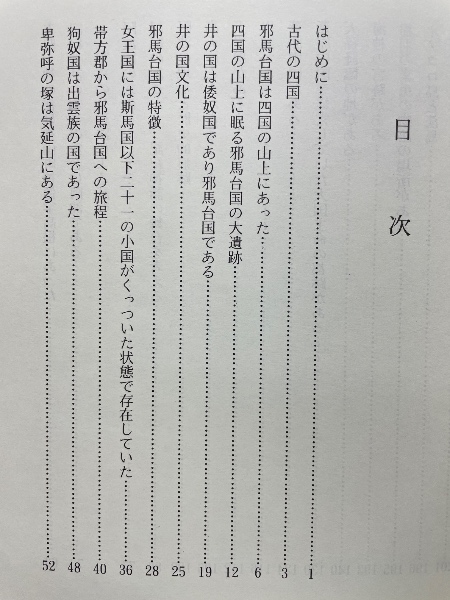 目次
はじめに…………1
古代の四国…………3
邪馬台国は四国の山上にあった…………6
四国の山上に眠る邪馬台国の大遺跡…………12
井の国は倭奴国であり邪馬台国である…………19
井の国文化…………25
邪馬台国の特徴…………28
女王国には斯馬国以下二十一の小国がくっついた状態で存在していた…………36
帯方郡から邪馬台国への旅程…………40
狗奴国は出雲族の国であった…………48
卑弥呼の塚は気延山にある…………52